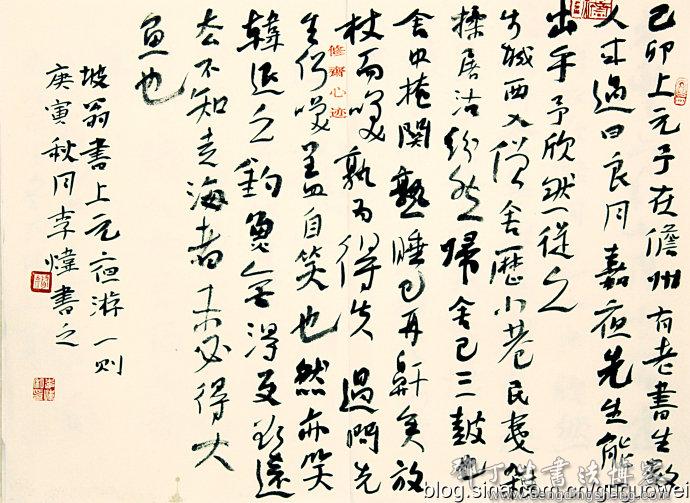 己卯上元予在儋州有老書生數
人来過曰良月嘉夜先生能
出乎予欣然一從之
步城西入僧舍歷小巷民夷雜
揉屠沽紛然歸舍已三鼓矣
舍中掩關熟睡已再鼾矣放
杖而笑孰為得失過問先
生何笑蓋自笑也然亦笑
韓退之釣魚無得更欲遠
去不知走海者未必得大
魚也
坡翁書上元夜游一则
庚寅秋月李煒書之
修齋心迹
blog.sina.com.cn/guduowei